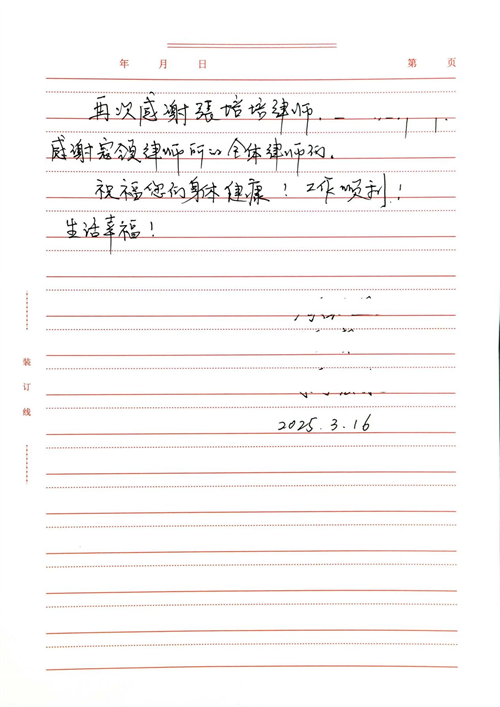 年 月 日 第 页
再次感谢张培培律师.
感谢冠领律师所的全体律师们.
祝福您们身体健康！工作顺利！
生活幸福！
2025.3.16
装订线